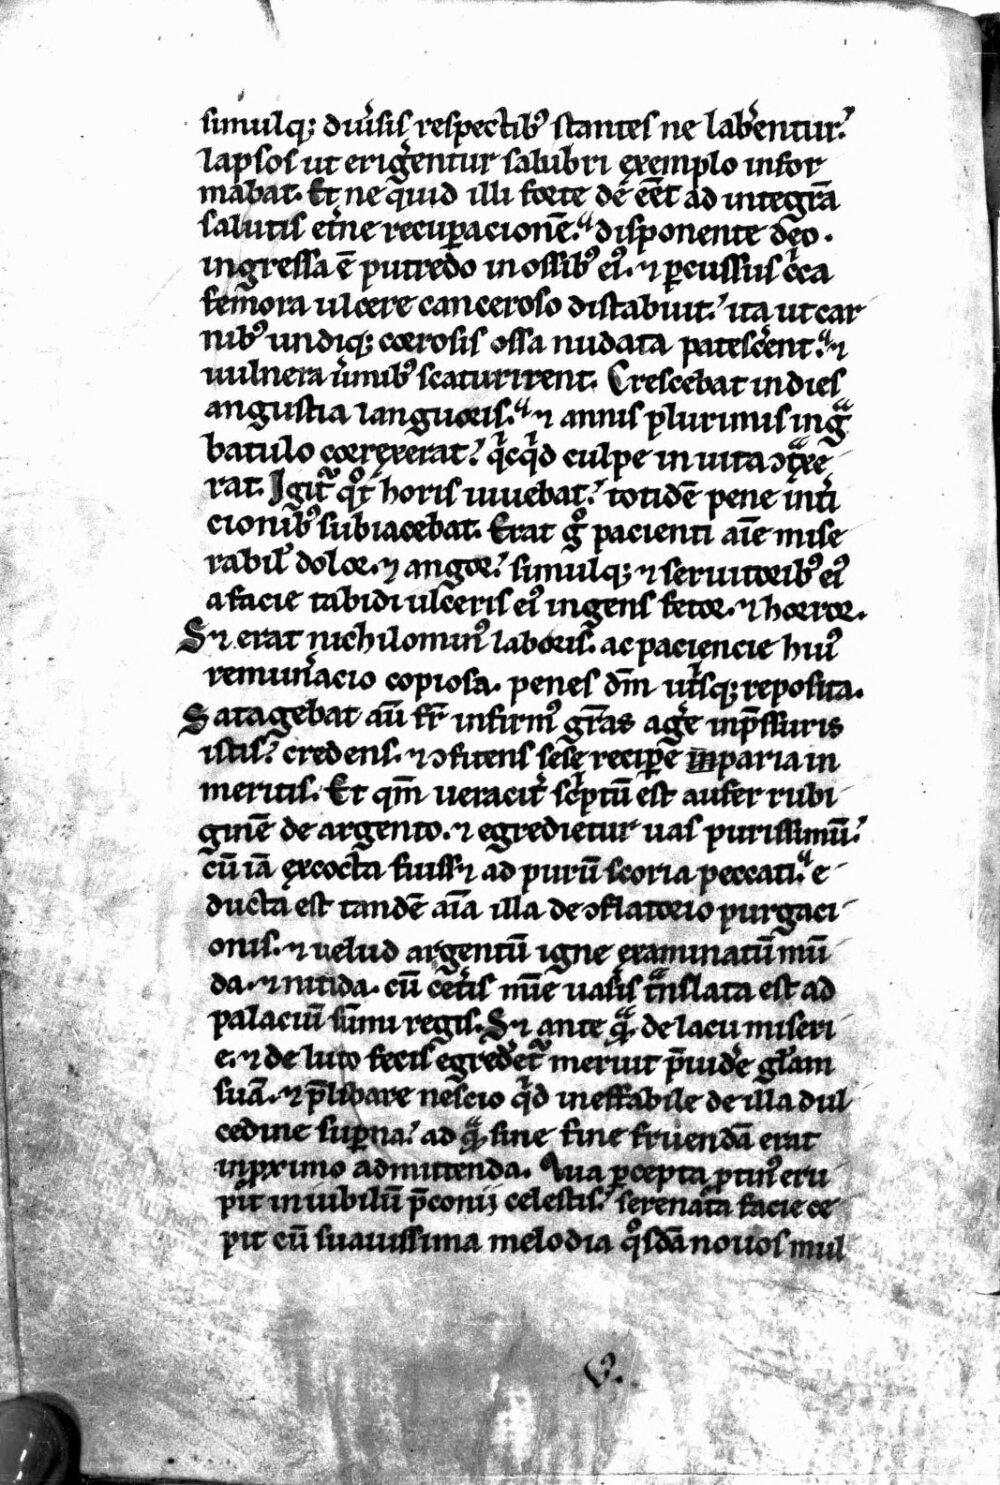 simulq; diu͛sis respectib⁹ stantes ne lab͛entur.
lapsos ut erig͛entur salubri exemplo infor
mabat. Et ne quid illi forte de͛ eēt ad integrā
salutis et͛ne recuꝑacionē. disponente deo.
ingressa ē putredo in ossib⁹ ei⁹. ⁊ ꝑcussus c͛ca
femora ulcere canceroso distabuit. ita ut car
nib⁹ undiq; corosis ossa nudata patesc͛ent. ⁊
uulnera u͛mib⁹ scaturirent. Crescebat in dies
angustia languoris. ⁊ annis plurimis in gᵃ
batulo correxerat. qͥcqͥd culpe in uita ↄtᵃxe
rat. Igit᷑ qͦt horis uiuebat. totidē pene int͛i
cionib⁹ subiacebat. Erat gͦ pacienti aīe mise
rabil᷑ dolor. ⁊ angor. simulq; ⁊ seruitorib⁹ ei⁹
a facie tabidi ulceris ei⁹ ingens fetor. ⁊ horror.
S⁊ erat nichilomin⁹ laboris. ac paciencie hui⁹
remun͛acio copiosa. penes dm̄ ut͛sq; reposita.
Satagebat aū fr̄ infirm⁹ gr̄as ag͛e in p̄ssuris
istis. credens. ⁊ ↄfitens sese reciꝑe in paria in
meritis. Et qm̄ ueracit͛ scͥptū est aufer rubi
ginē de argento. ⁊ egredietur uas purissimū.
cū iā excocta fuiss⁊ ad purū scoria peccati. e
ducta est tandē aīa illa de ↄflatorio purgaci
onis. ⁊ uelud argentū igne examinatū mū
da. ⁊ nitida. cū cet͛is mīe uasis tᵃnslata est ad
palaciū sūmi regis. S⁊ ante qᵃ̄ de lacu miseri
e. ⁊ de luto fecis egredet᷑ meruit p̄uid͛e gl̄am
suā. ⁊ p̄libare nescio qͥd ineffabile de illa dul
cedine suꝑna. ad qᵃ̄ sine fine fruendā erat
in ꝓximo admittenda. Qua ꝑcepta ꝓtin⁹ eru
pit in iubilū p̄conij celestis. serenata facie ce
pit cū suauissima melodia qͦsdā nouos mul
v.